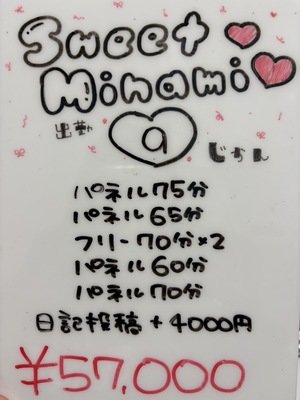 Sweet
Minami
出勤 9 じかん
パネル75分
パネル65分
フリー70分×2
パネル60分
パネル70分
日記投稿+4000円
¥57,000